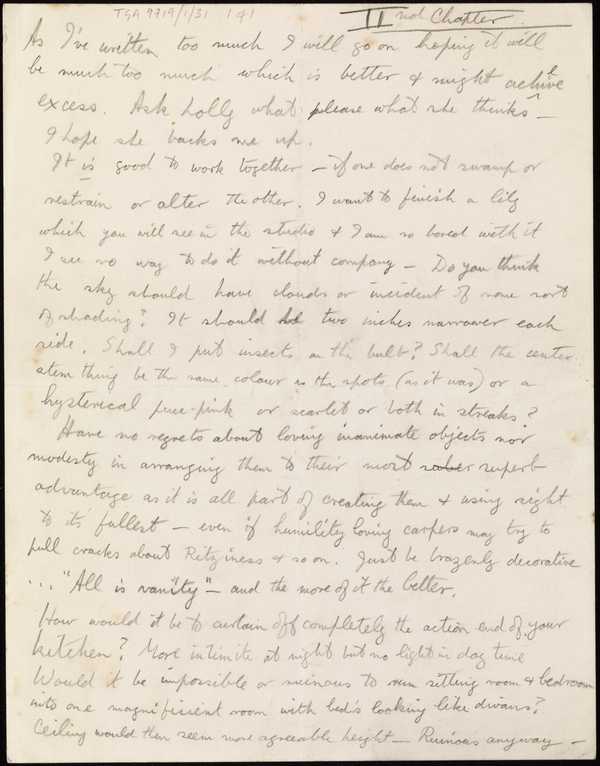 TGA 9719/1/31 1 of 1
IInd Chapter.
As I've written too much I will go on hoping it will
be much too much which is better & might achive
excess. Ask Lolly what please what she thinks –
I hope she backs me up.
It is good to work together – if one does not swamp or
restrain or alter the other. I want to finish a lily
which you will see in the studio & I am so bored with it
I see no way to do it without company – Do you think
the sky should have clouds or incident of some sort
of shading? It should two inches narrower each
side. Shall I put insects on the bulb? Shall the center
stem thing be the same colour as the spots (as it was) or a
hysterical puce-pink or scarlet or both in streaks?
Have no regrets about loving inanimate objects nor
modesty in arranging them to their most superb
advantage as it is all part of creating them & using sight
to its fullest – even if humility loving carpers may try to
pull cracks about Ritziness & so on. Just be brazenly decorative
... "All is vanity" – and the more of it the better.
How would it be to curtain off completely the action end of your
kitchen? More intimite at night but no light in day time
Would it be impossible or ruinous to run sitting room & bedroom
into one magnifisient room with bed's looking like divans?
Ceiling would then seem more agreeable height – Ruinous anyway –